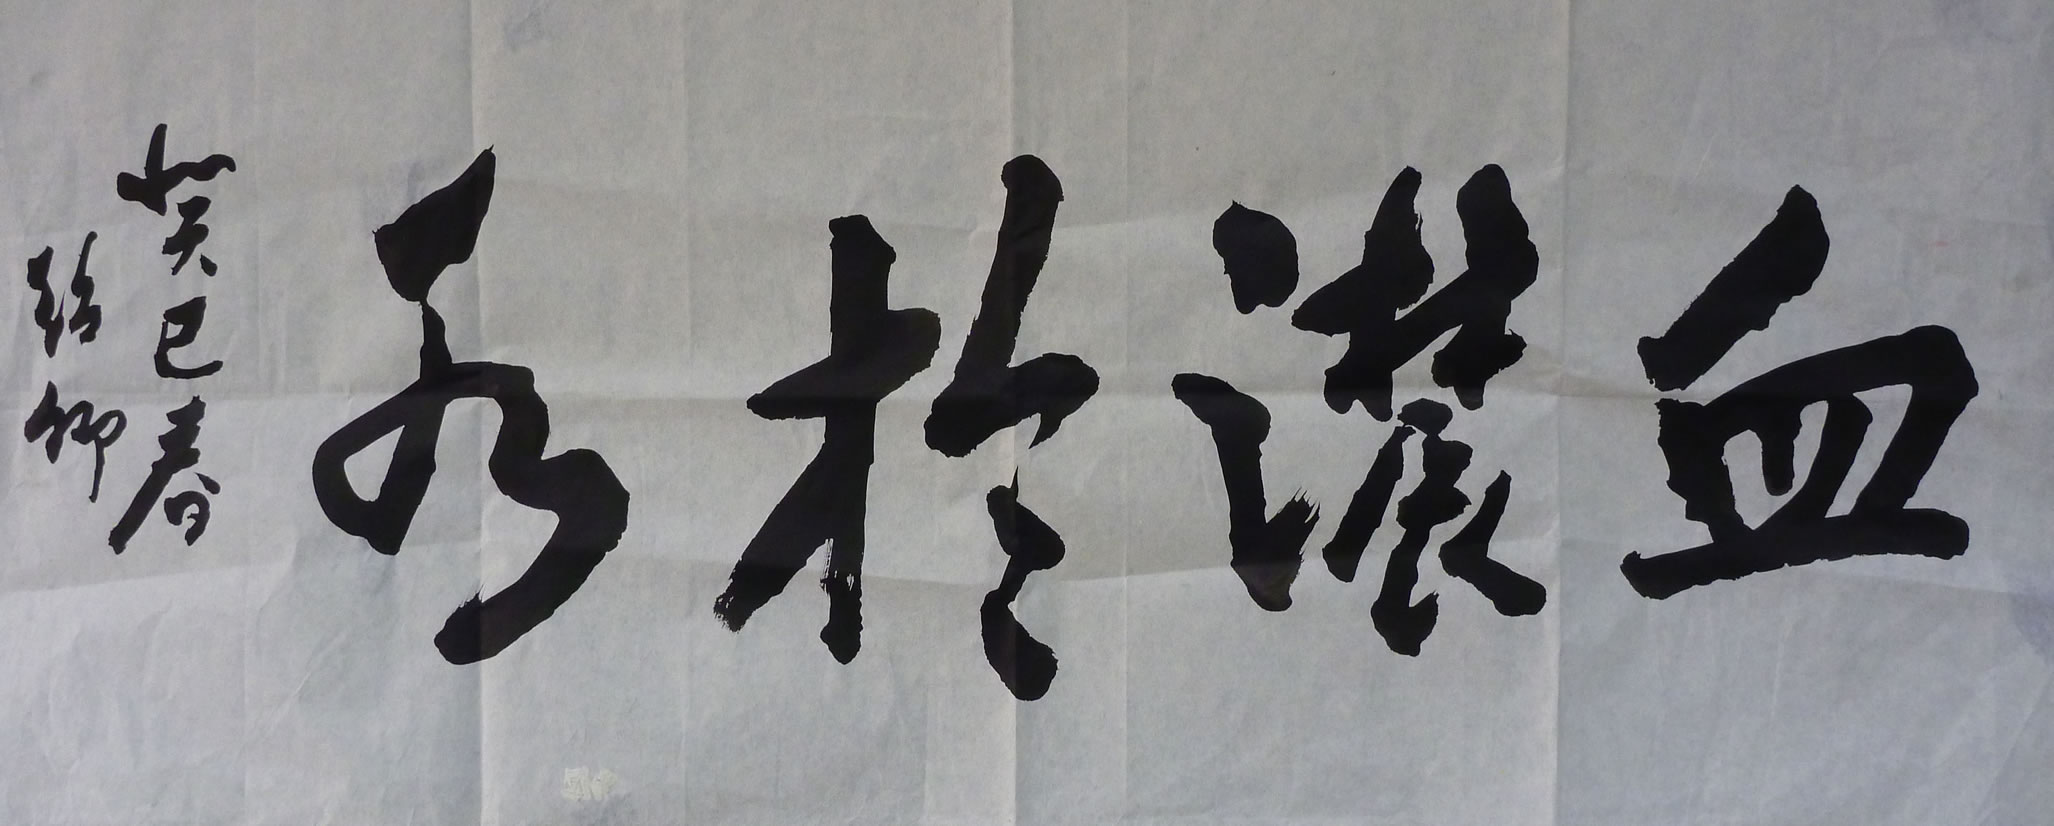 血濃於水
癸巳春
紹卿